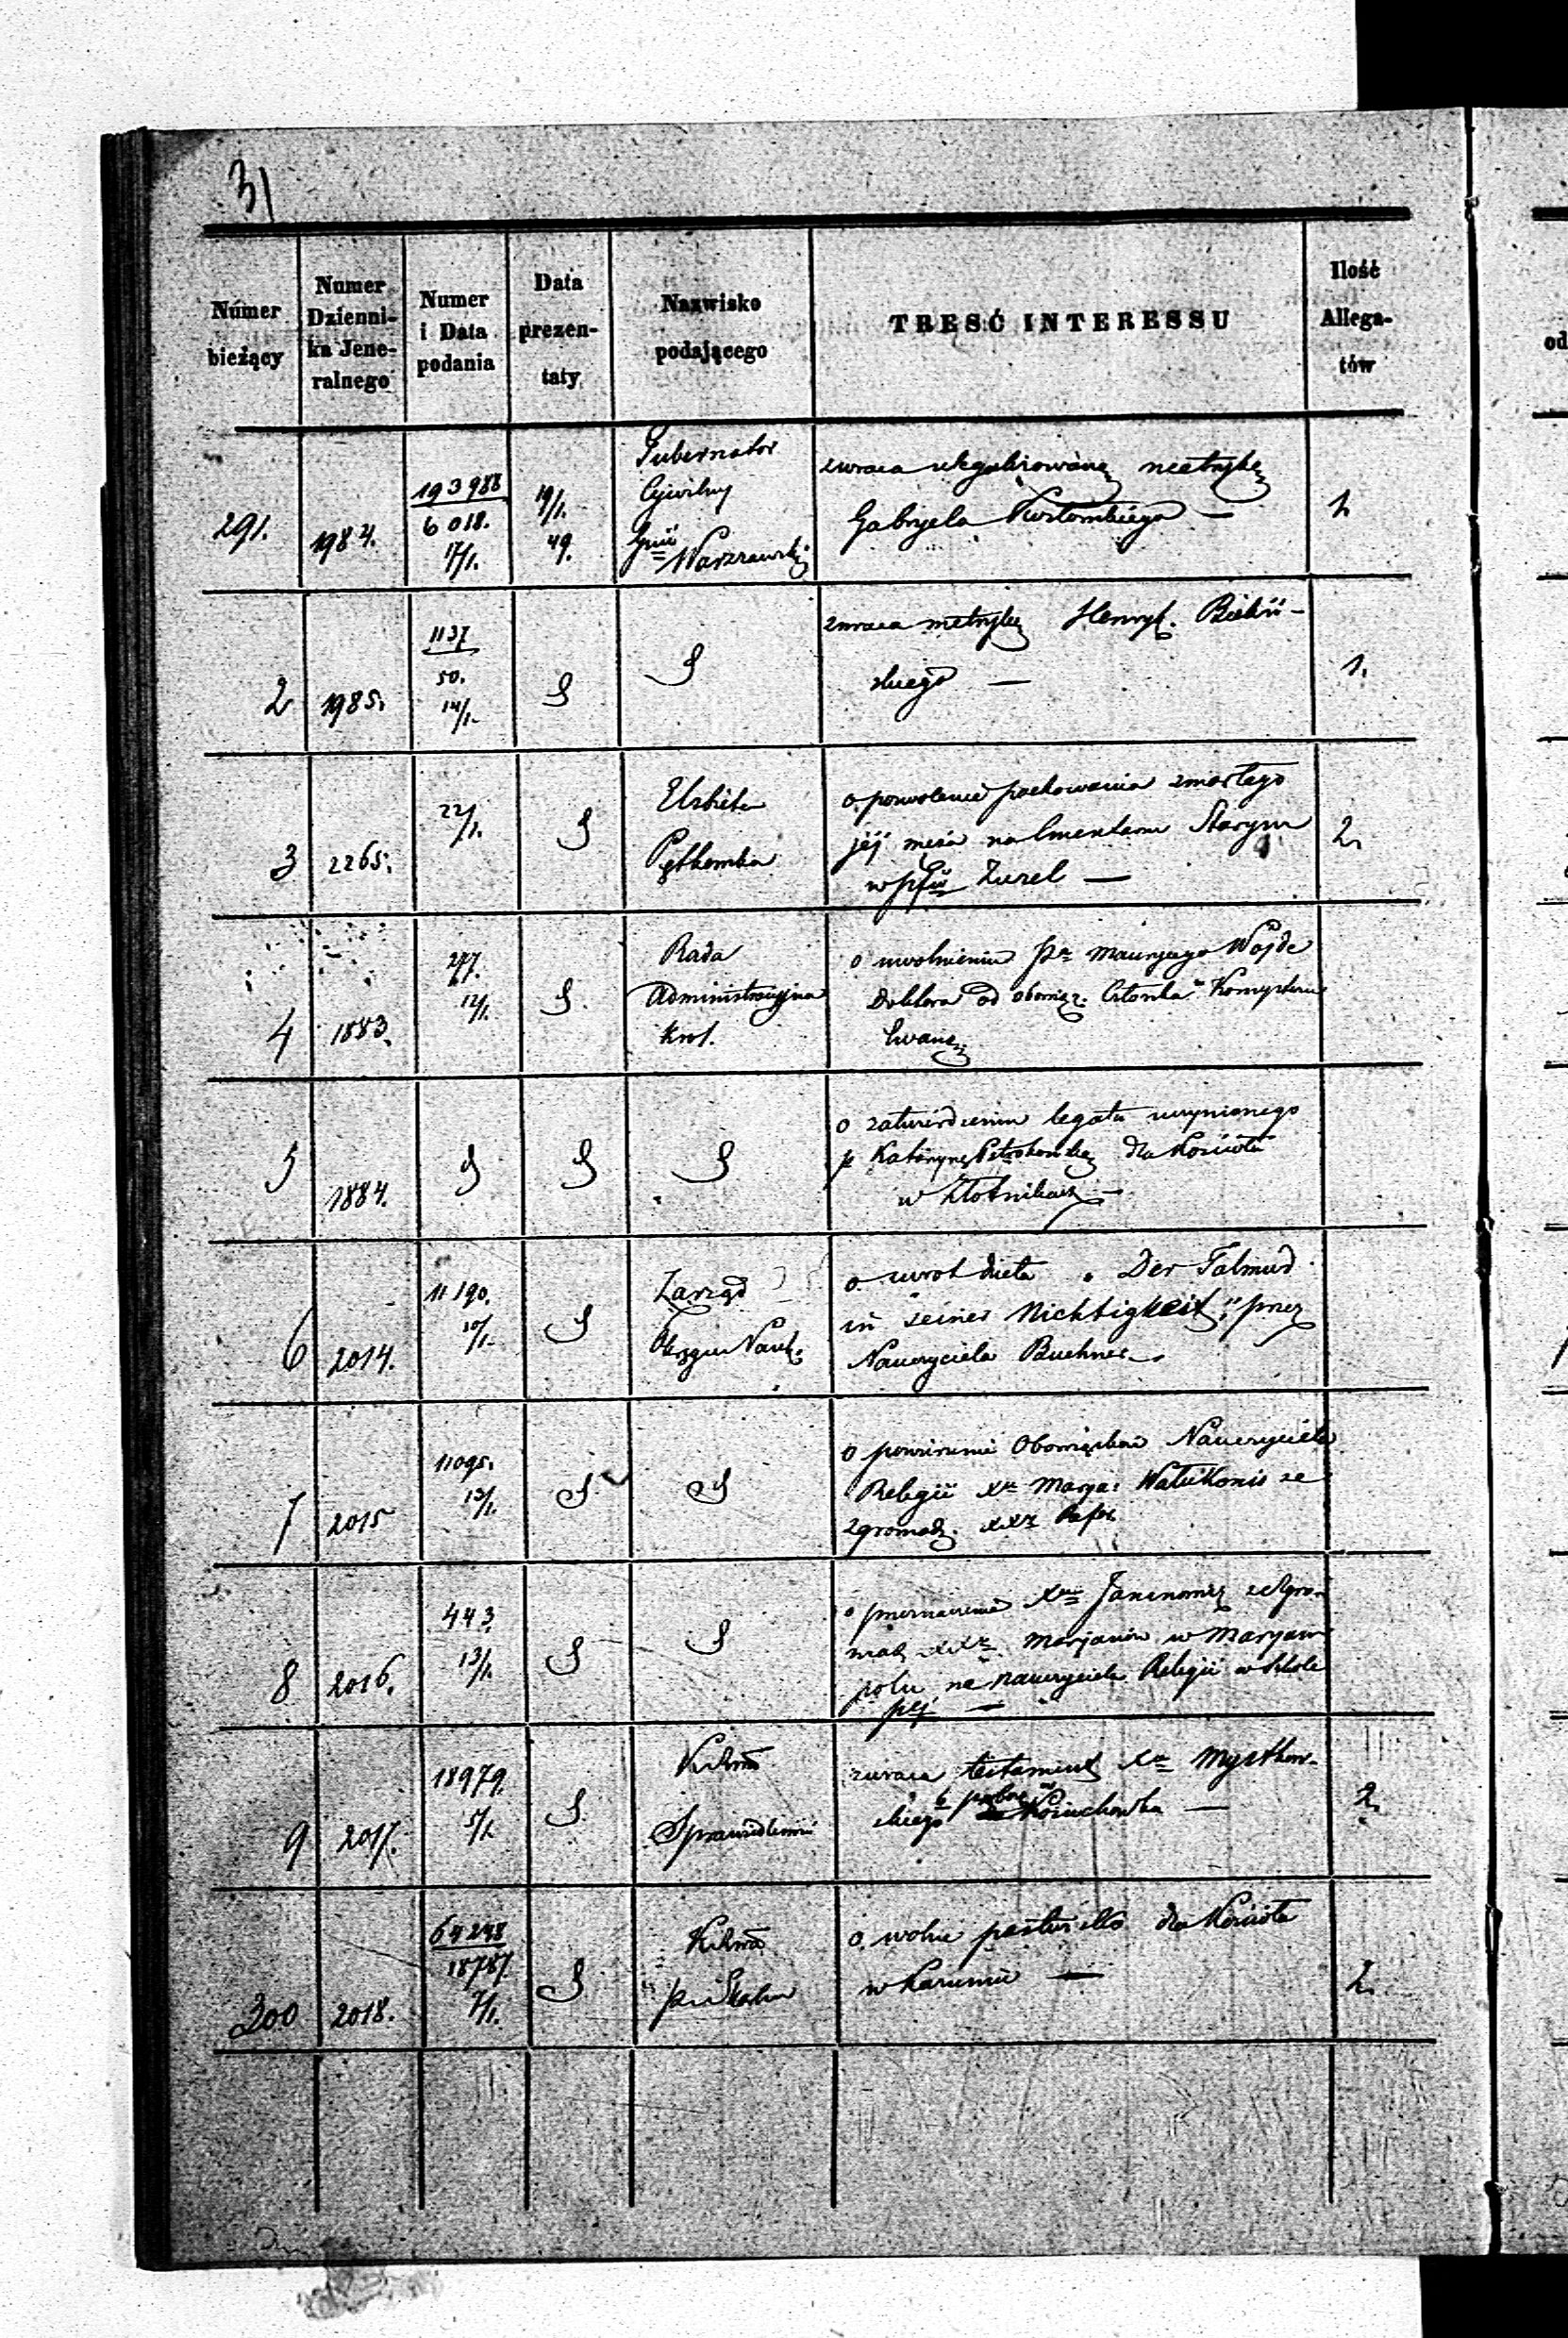 31
Numer bieżący
Numer Dzienni- ka Jene- ralnego
Numer i Data podania
Data prezen- taty
Nazwisko podającego
TREŚĆ INTERESSU
Ilość Allega- tów
291. 1984. 193988 6018. 17/1. 19/1. 49.
Gubernator
Cywilny
Warszawski
zwraca zlegalizowaną metrykę
Gabryela
1.
2 1985. 1137 50. 14/1.
zwraca metrykę Henryk.
skiego —
1.
3 2265. 22/1.
Elżbieta
o pozwolenie pochowania zmarłego
jéj męża na Cmentarzu Starym
w Zuzel —
2.
4 1883. 277. 12/1.
Rada
Administracyjna
Król.
o uwolnieniu Maurycego Wojde
Doktora od obowiąz. Członka
5 1884.
o zatwierdzeniu legatu uczynionego
p Katarzynę dla Kościoła
w Złotnikach —
6 2014. 11190. 10/1.
Zarząd
Okręgu Nauk.
o zwrot dzieła „Der Talmud
in seiner Nichtigkeit" przez
Nauczyciela Buchner
7 2015 11095. 13/1.
o powierzenie Obowiązków Nauczyciela
Religii Xu Marya:
zgromadz. XX
8 2016. 443. 13/1.
o przeznaczenie Xa ze Zgro-
madz XX Marjanów w Maryam-
polu na nauczyciela Religii w szkole
9 2017. 18979. 5/1.
Sprawiedliwości
zwraca testament Xa Mystkow-
skiego —
2.
300 2018. 64248 18787. 7/1.
Skarbu
o wolne pastwisko dla Kościoła
w —
2.
od